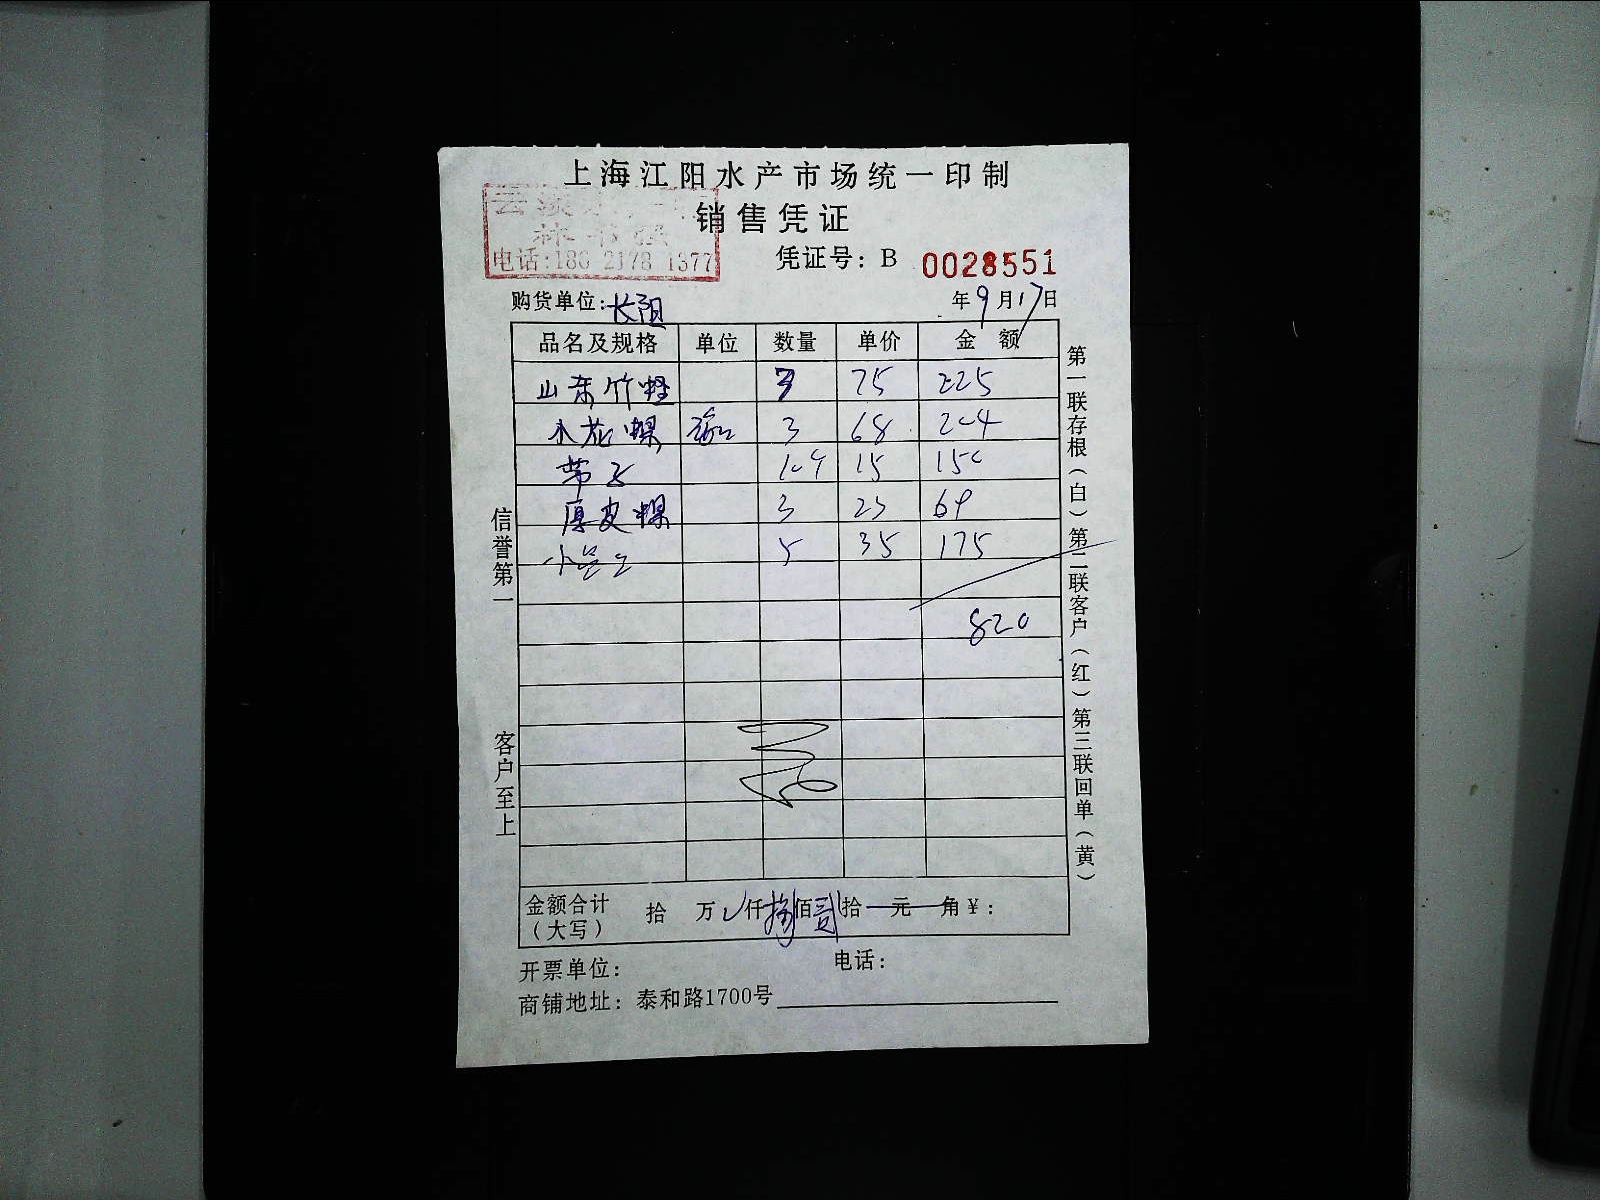 上海江阳水产市场统一印制
销售凭证
电话:186 2178 1377
凭证号: B 0028551
购货单位: 长阳
年 9 月 17 日
品名及规格 单位 数量 单价 金 额
山东竹蛏 3 75 225
花螺 3 68 204
带子 10个 15 150
厚皮螺 3 23 69
小 5 35 175
820
信誉第一
客户至上
第一联存根(白)第二联客户(红)第三联回单(黄)
金额合计(大写) 拾 万 仟 捌 佰 贰 拾 元 角 ¥:
开票单位: 电话:
商铺地址: 泰和路1700号